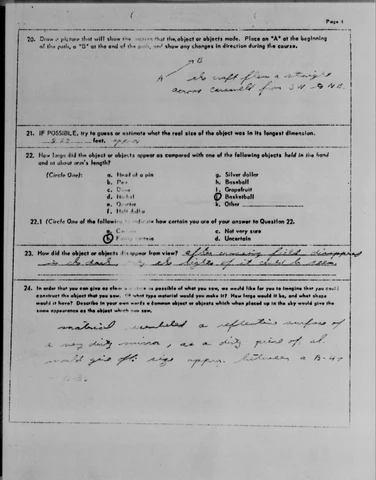 Page 4
20. Draw a picture that will show the motion that the object or objects made. Place an "A" at the beginning
of the path, a "B" at the end of the path, and show any changes in direction during the course.
B
A
craft from a straight
across from SW to NE
21. IF POSSIBLE, try to guess or estimate what the real size of the object was in its longest dimension.
feet.
22. How large did the object or objects appear as compared with one of the following objects held in the hand
and at about arm's length?
(Circle One):
a. Head of a pin
b. Pea
c. Dime
d. Nickel
e. Quarter
f. Half dollar
g. Silver dollar
h. Baseball
i. Grapefruit
j. Basketball
k. Other
22.1 (Circle One of the following to indicate how certain you are of your answer to Question 22.
a. Certain
b. Fairly certain
c. Not very sure
d. Uncertain
23. How did the object or objects disappear from view? after crossing field disappeared
lights of it could be seen
24. In order that you can give as clear a picture as possible of what you saw, we would like for you to imagine that you could
construct the object that you saw. Of what type material would you make it? How large would it be, and what shape
would it have? Describe in your own words a common object or objects which when placed up in the sky would give the
same appearance as the object which you saw.
material resembled a reflective surface of
a very dirty mirror, as a dirty piece of al
would give off. size approx. between a B-47